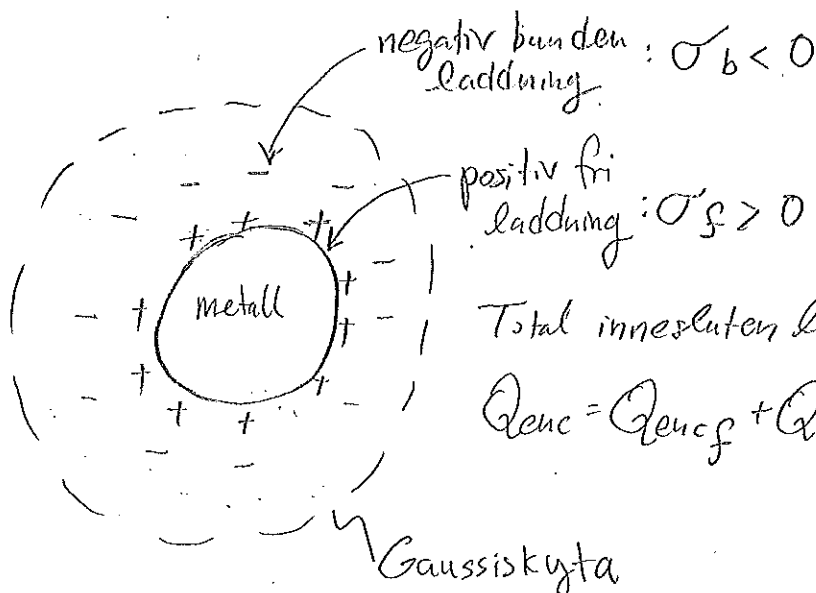 negativ bunden
laddning : σb < 0
positiv fri
laddning : σf > 0
metall
Total innesluten
Qenc = Qencf +
Gaussisk yta